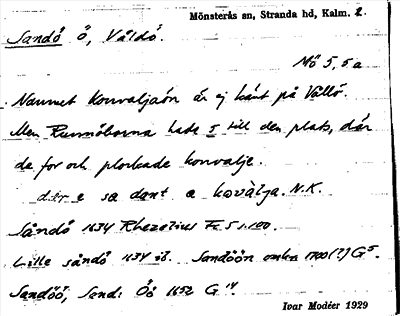 Mönsterås sn, Stranda hd, Kalm. l.
Sandö ö, Våldö.
Mö 5, 5a
Namnet Konvaljaön är ej känt på Vållö.
Men Runnöborna hade I till den plats, där
de for och plockade konvalje.
e sa dant a kovàlja. N.K.
Såndö 1634 Rhezelius Fs 5 s. 100.
Lille såndö 1634 ib. Sandöön omkr 1700(?) G5.
Sandöö, Sand: Öö 1652 G14.
Ivar Modéer 1929